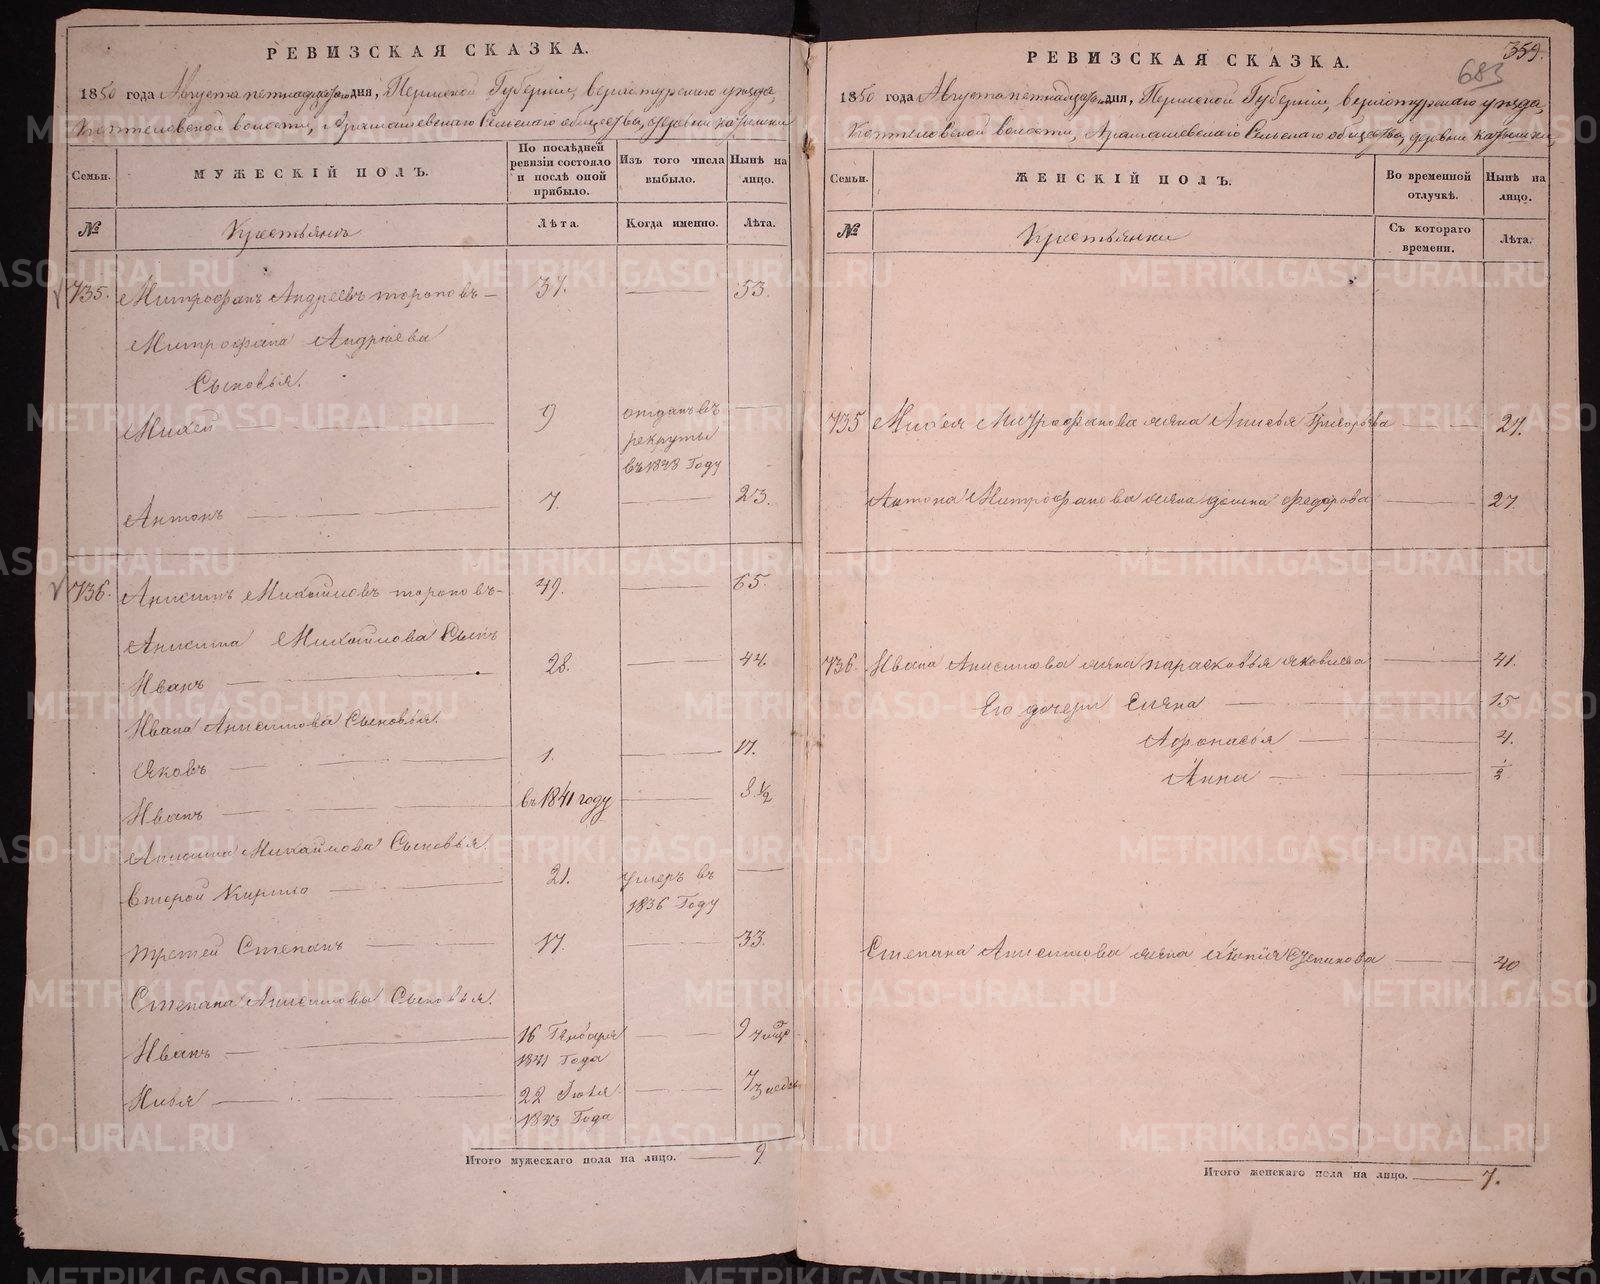 РЕВИЗСКАЯ СКАЗКА.
1850 года Августа пятнадцатого дня, Пермской Губернии, верхотурскаго уезда,
Коптеловской волости, Арамашевскаго Сельскаго общества, деревни
Семьи.
МУЖЕСКІЙ ПОЛЪ.
По послѣдней ревизіи состояло и послѣ оной прибыло.
Изъ того числа выбыло.
Нынѣ на лицо.
№
Крестьянъ
Лѣта.
Когда именно.
Лѣта.
735. Митрофанъ Андреевъ тороповъ — 37. — 53.
Митрофана Андреева
Сыновья.
Михей — 9 отданъ въ —
рекруты
въ 1848 Году
Антонъ — 7. — 23.
736. Анисимъ Михайловъ тороповъ- 49. — 65.
Анисима Михайлова Сынъ
Иванъ — 28. — 44.
Ивана Анисимова Сыновья.
Яковъ — 1. — 17.
Иванъ — въ 1841 году — 8 1/2
Анисима Михайлова Сыновья
второй Кирило — 21. умеръ въ —
1836 Году
третей Степанъ — 17. — 33.
Степана Анисимова Сыновья.
Иванъ — 16 Генваря — 9 7 мцо
1841 Года
Илья — 22 Июля — 7 3 недл
1843 Года
Итого мужескаго пола на лицо. — 9
359.
683
РЕВИЗСКАЯ СКАЗКА.
1850 года Августа пятнадцатого дня, Пермской Губернии, верхотурскаго уезда,
Коптеловской волости, Арамашевскаго Сельскаго общества, деревни
Семьи.
ЖЕНСКІЙ ПОЛЪ.
Во временной отлучкѣ.
Нынѣ на лицо.
№
Крестьянки
Съ котораго времени.
Лѣта.
735 Михея Митрофанова жена Анисья Григорьева — 27.
Антона Митрофанова жена федорова — 27.
736. Ивана Анисимова жена парасковья яковлева — 41.
Его дочери Елена — 15
Афонасья — 4.
Анна —
Степана Анисимова жена — 40
Итого женскаго пола на лицо. — 7.
METRIKI.GASO-URAL.RU